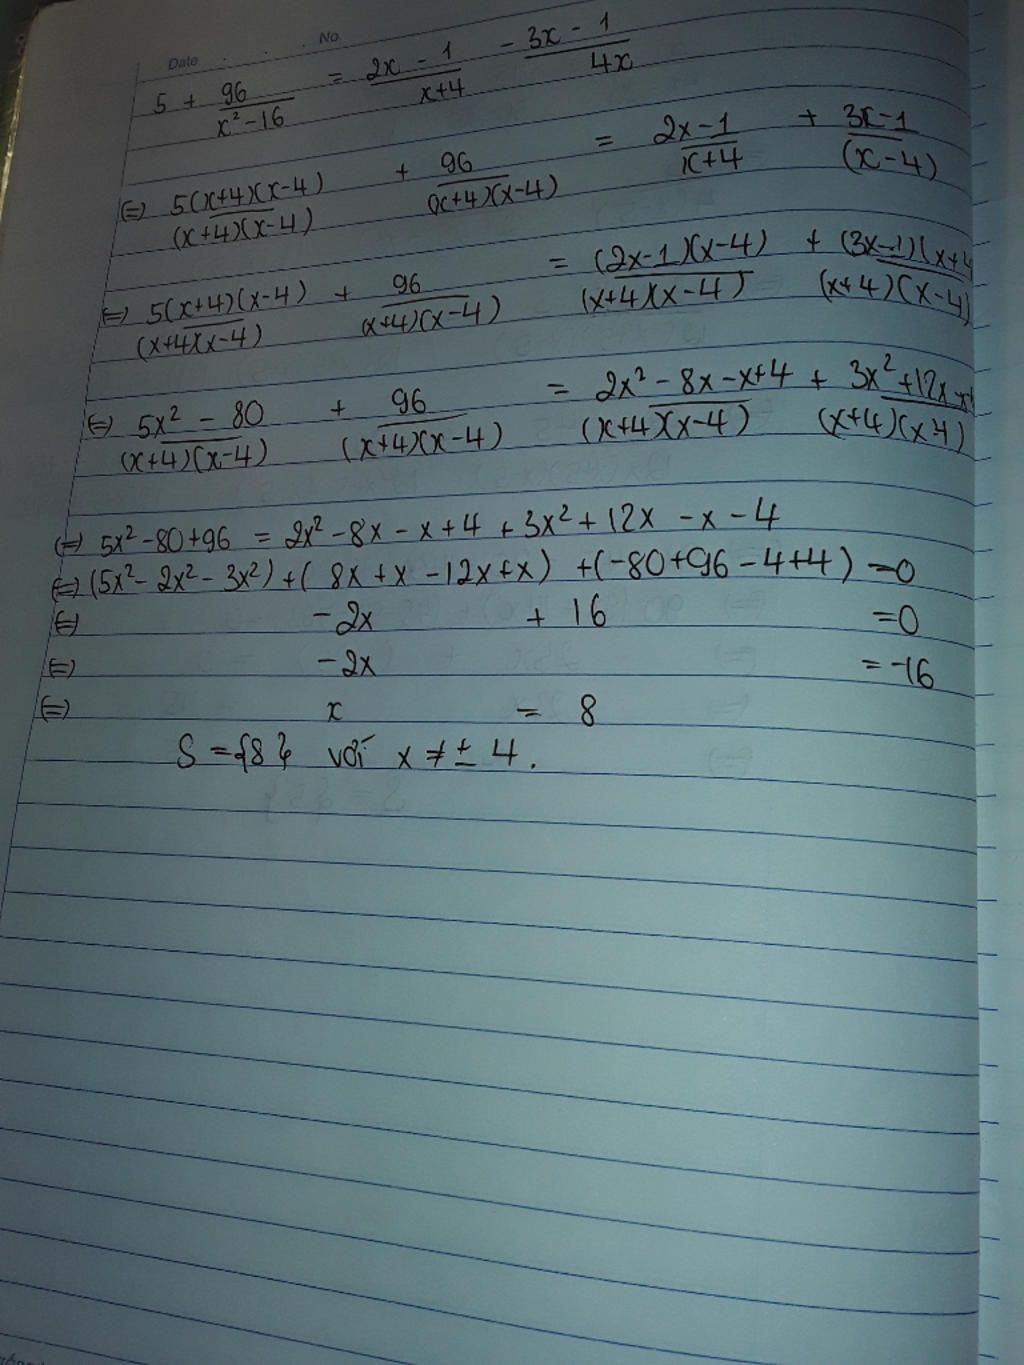 Date No.
5 + 96/(x² - 16) = (2x - 1)/(x+4) - (3x - 1)/(4x)
(=) 5(x+4)(x-4)/((x+4)(x-4)) + 96/((x+4)(x-4)) = (2x-1)/(x+4) + (3x-1)/(x-4)
(=) 5(x+4)(x-4)/((x+4)(x-4)) + 96/((x+4)(x-4)) = (2x-1)(x-4)/((x+4)(x-4)) + (3x-1)(x+4/((x+4)(x-4)
(=) (5x² - 80)/((x+4)(x-4)) + 96/((x+4)(x-4)) = (2x² - 8x - x+4)/((x+4)(x-4)) + (3x² + 12x - x/((x+4)(x-4)
(=) 5x² - 80 + 96 = 2x² - 8x - x + 4 + 3x² + 12x - x - 4
(=) (5x² - 2x² - 3x²) + ( 8x + x - 12x + x) + (-80 + 96 - 4 + 4) = 0
(=) -2x + 16 = 0
(=) -2x = -16
(=) x = 8
S = {8} với x ≠ ± 4.